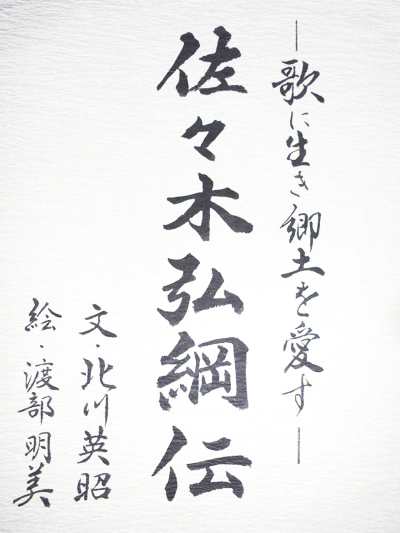 ―歌に生き郷土を愛す―
佐々木弘綱伝
文・北川英昭
絵・渡部明美